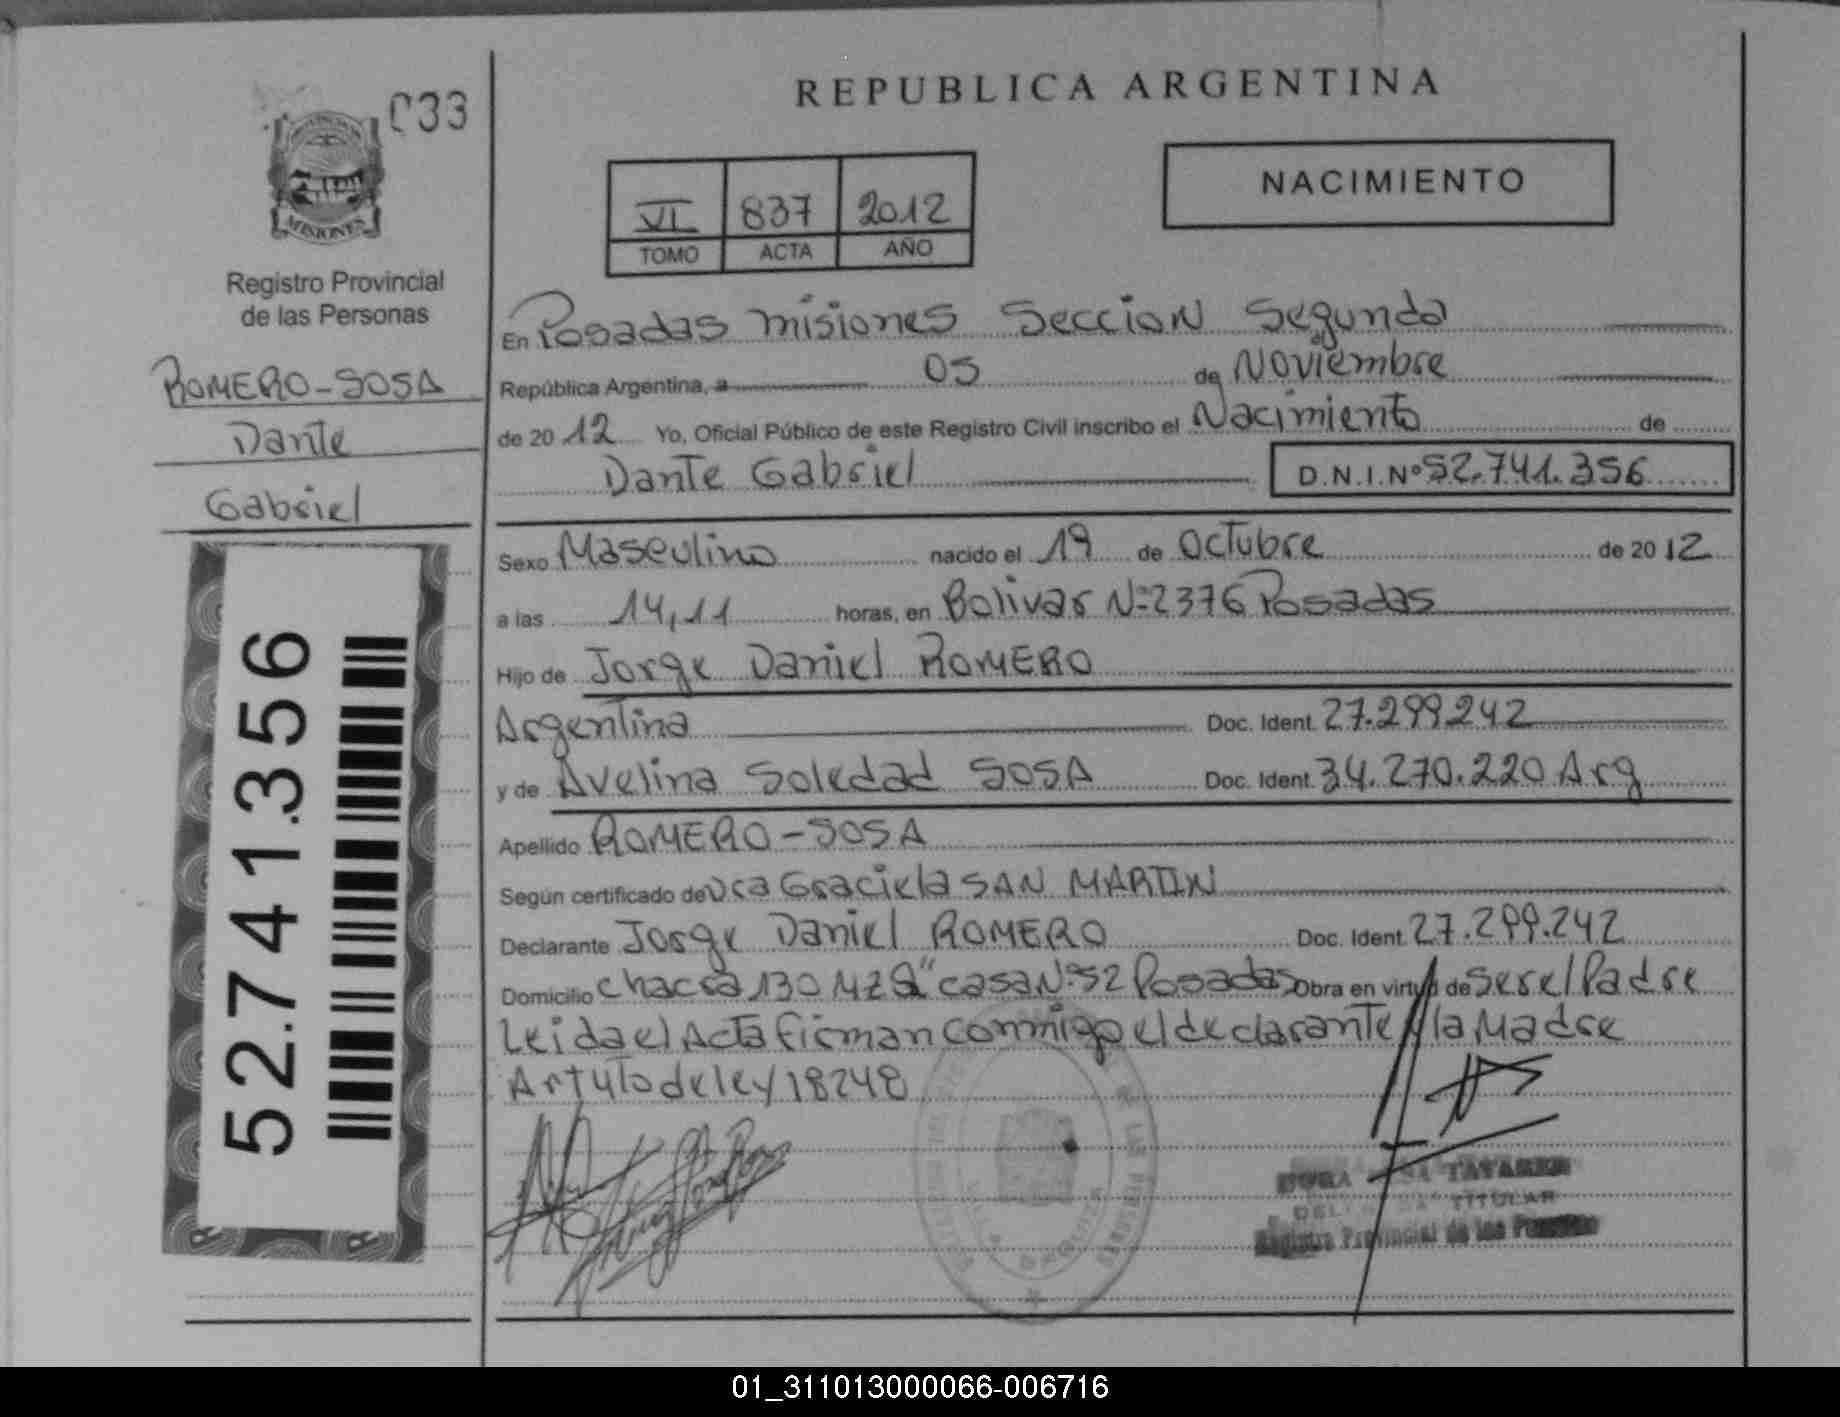 033
MISIONES
Registro Provincial
de las Personas
ROMERO-SOSA
Dante
Gabriel
52.741.356
REPUBLICA ARGENTINA
NACIMIENTO
VI 837 2012
TOMO ACTA AÑO
En Posadas Misiones Seccion Segunda
República Argentina, a 05 de Noviembre
de 2012 Yo, Oficial Público de este Registro Civil inscribo el Nacimiento de
Dante Gabriel D.N.I.Nº 52.741.356
Sexo Masculino nacido el 19 de Octubre de 2012
a las 14,11 horas, en Bolivar Nº 2376 Posadas
Hijo de Jorge Daniel ROMERO
Argentina Doc. Ident. 27.299.242
y de Avelina Soledad SOSA Doc. Ident. 34.270.220 Arg
Apellido ROMERO-SOSA
Según certificado de Dra Graciela SAN MARTIN
Declarante Jorge Daniel ROMERO Doc. Ident. 27.299.242
Domicilio chacra 130 MZ casa Nº 52 Posadas Obra en virtud de ser el Padre
Leida el Acta firman conmigo el declarante y la Madre
Art 4to de ley 18248
TITULAR
Registro Provincial de las Personas
01_311013000066-006716